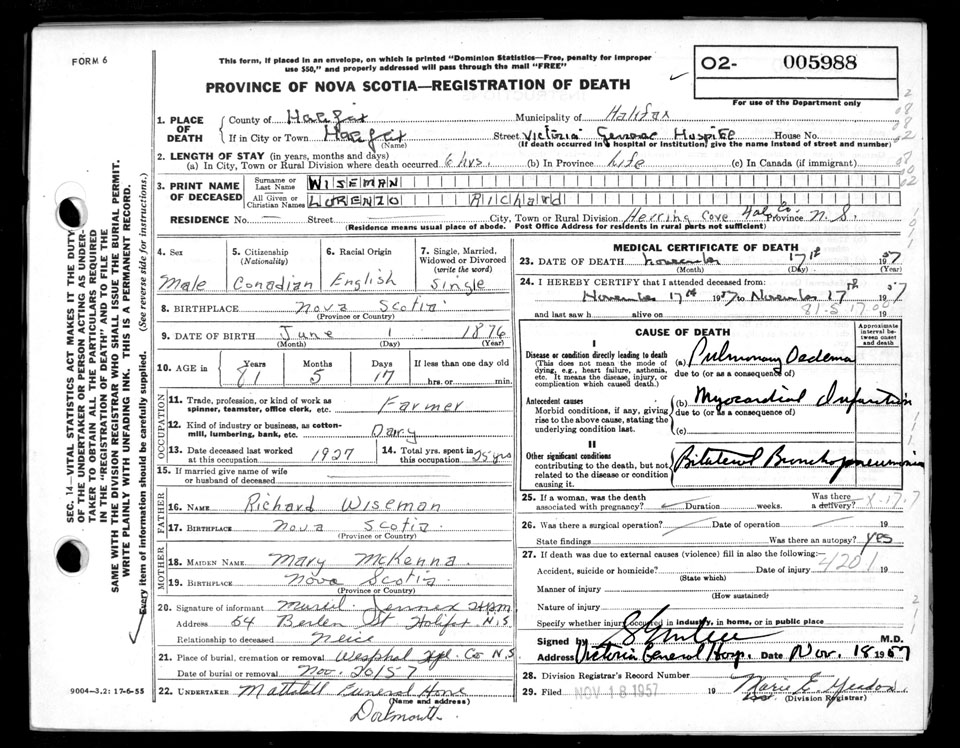 FORM 6
This form, if placed in an envelope, on which is printed "Dominion Statistics—Free, penalty for improper
use $50," and properly addressed will pass through the mail "FREE"
PROVINCE OF NOVA SCOTIA—REGISTRATION OF DEATH
O2- 005988
For use of the Department only
1. PLACE OF DEATH
County of Halifax Municipality of Halifax
If in City or Town Halifax (Name) Street Victoria General Hospital House No.
(If death occurred in hospital or institution, give the name instead of street and number)
2. LENGTH OF STAY (in years, months and days)
(a) In City, Town or Rural Division where death occurred 6 hrs. (b) In Province Life (c) In Canada (if immigrant)
3. PRINT NAME OF DECEASED
Surname or Last Name WISEMAN
All Given or Christian Names LORENZO Richard
RESIDENCE No. Street City, Town or Rural Division Herring Cove Hal Co. Province N.S.
(Residence means usual place of abode. Post Office Address for residents in rural parts not sufficient)
4. Sex Male
5. Citizenship (Nationality) Canadian
6. Racial Origin English
7. Single, Married, Widowed or Divorced (write the word) Single
8. BIRTHPLACE Nova Scotia
(Province or Country)
9. DATE OF BIRTH June 1 1876
(Month) (Day) (Year)
10. AGE in Years 81 Months 5 Days 17 If less than one day old hrs. or min.
OCCUPATION
11. Trade, profession, or kind of work as spinner, teamster, office clerk, etc. Farmer
12. Kind of industry or business, as cotton-mill, lumbering, bank, etc. Dairy
13. Date deceased last worked at this occupation 1927
14. Total yrs. spent in this occupation 25 yrs
15. If married give name of wife or husband of deceased
FATHER
16. NAME Richard Wiseman
17. BIRTHPLACE Nova Scotia
(Province or Country)
MOTHER
18. MAIDEN NAME Mary McKenna
19. BIRTHPLACE Nova Scotia
(Province or Country)
20. Signature of informant Muriel Jennex
Address 54 Berlen St Halifax N.S.
Relationship to deceased Neice
21. Place of burial, cremation or removal Westphal Hfx. Co N.S
Date of burial or removal Nov. 20/57
22. UNDERTAKER Mattatall Funeral Home
(Name and address)
Dartmouth
9004-3.2: 17-6-55
MEDICAL CERTIFICATE OF DEATH
23. DATE OF DEATH November 17th 1957
(Month) (Day) (Year)
24. I HEREBY CERTIFY that I attended deceased from:
November 17th 1957 to November 17th 1957
and last saw h alive on 19
CAUSE OF DEATH
Approximate interval between onset and death
I
Disease or condition directly leading to death (This does not mean the mode of dying, e.g., heart failure, asthenia, etc. It means the disease, injury, or complication which caused death.)
(a) Pulmonary Oedema
due to (or as a consequence of)
Antecedent causes
Morbid conditions, if any, giving rise to the above cause, stating the underlying condition last.
(b) Myocardial Infarction
due to (or as a consequence of)
(c)
II
Other significant conditions contributing to the death, but not related to the disease or condition causing it.
Bilateral Bronchopneumonia
25. If a woman, was the death associated with pregnancy? Duration weeks. Was there a delivery?
26. Was there a surgical operation? Date of operation 19
State findings Was there an autopsy? Yes
27. If death was due to external causes (violence) fill in also the following:
Accident, suicide or homicide? Date of injury 19
4201
(State which)
Manner of injury
(How sustained)
Nature of injury
Specify whether injury occurred in industry, in home, or in public place
Signed by M.D.
Address Victoria General Hosp. Date Nov. 18 1957
28. Division Registrar's Record Number
29. Filed NOV 18 1957 19
(Division Registrar)
SEC. 14—VITAL STATISTICS ACT MAKES IT THE DUTY
OF THE UNDERTAKER OR PERSON ACTING AS UNDER-
TAKER TO OBTAIN ALL THE PARTICULARS REQUIRED
IN THE "REGISTRATION OF DEATH" AND TO FILE THE
SAME WITH THE DIVISION REGISTRAR WHO SHALL ISSUE THE BURIAL PERMIT.
WRITE PLAINLY WITH UNFADING INK. THIS IS A PERMANENT RECORD.
Every item of information should be carefully supplied. (See reverse side for instructions.)